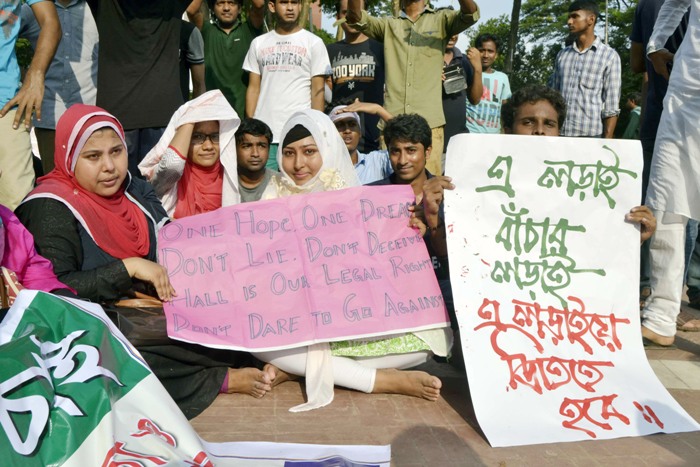 ZOO YORK
One Hope One Dream
Don't Lie. Don't Deceive
Hall is Our Legal Rights.
Don't Dare to Go Against
এ লড়াই
বাঁচার
লড়াই
এ লড়াইয়ে
জিততে
হবে।।